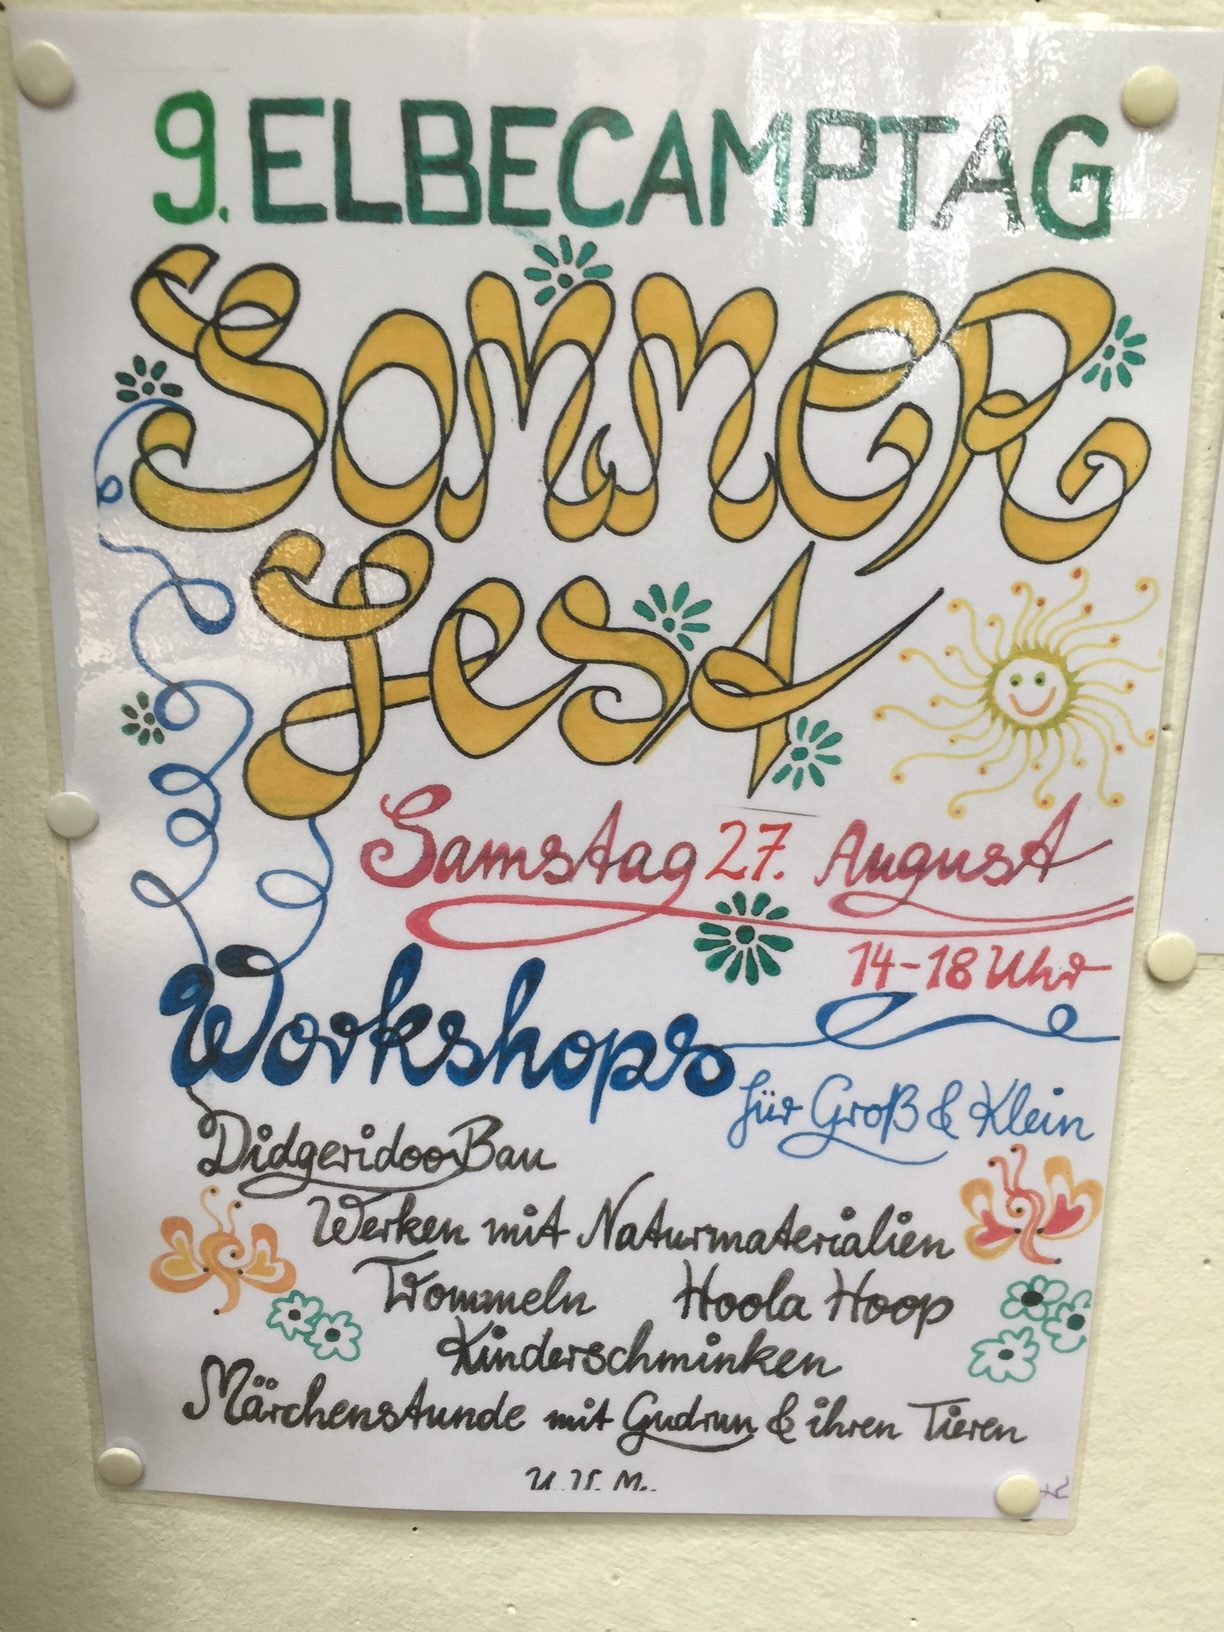 9. ELBECAMPTAG
SOMMER
fest
Samstag 27. August
14-18 Uhr
Workshops
für Groß & Klein
Didgeridoo Bau
Werken mit Naturmaterialien
Trommeln Hoola Hoop
Kinderschminken
Märchenstunde mit Gudrun & ihren Tieren
u.v.m.